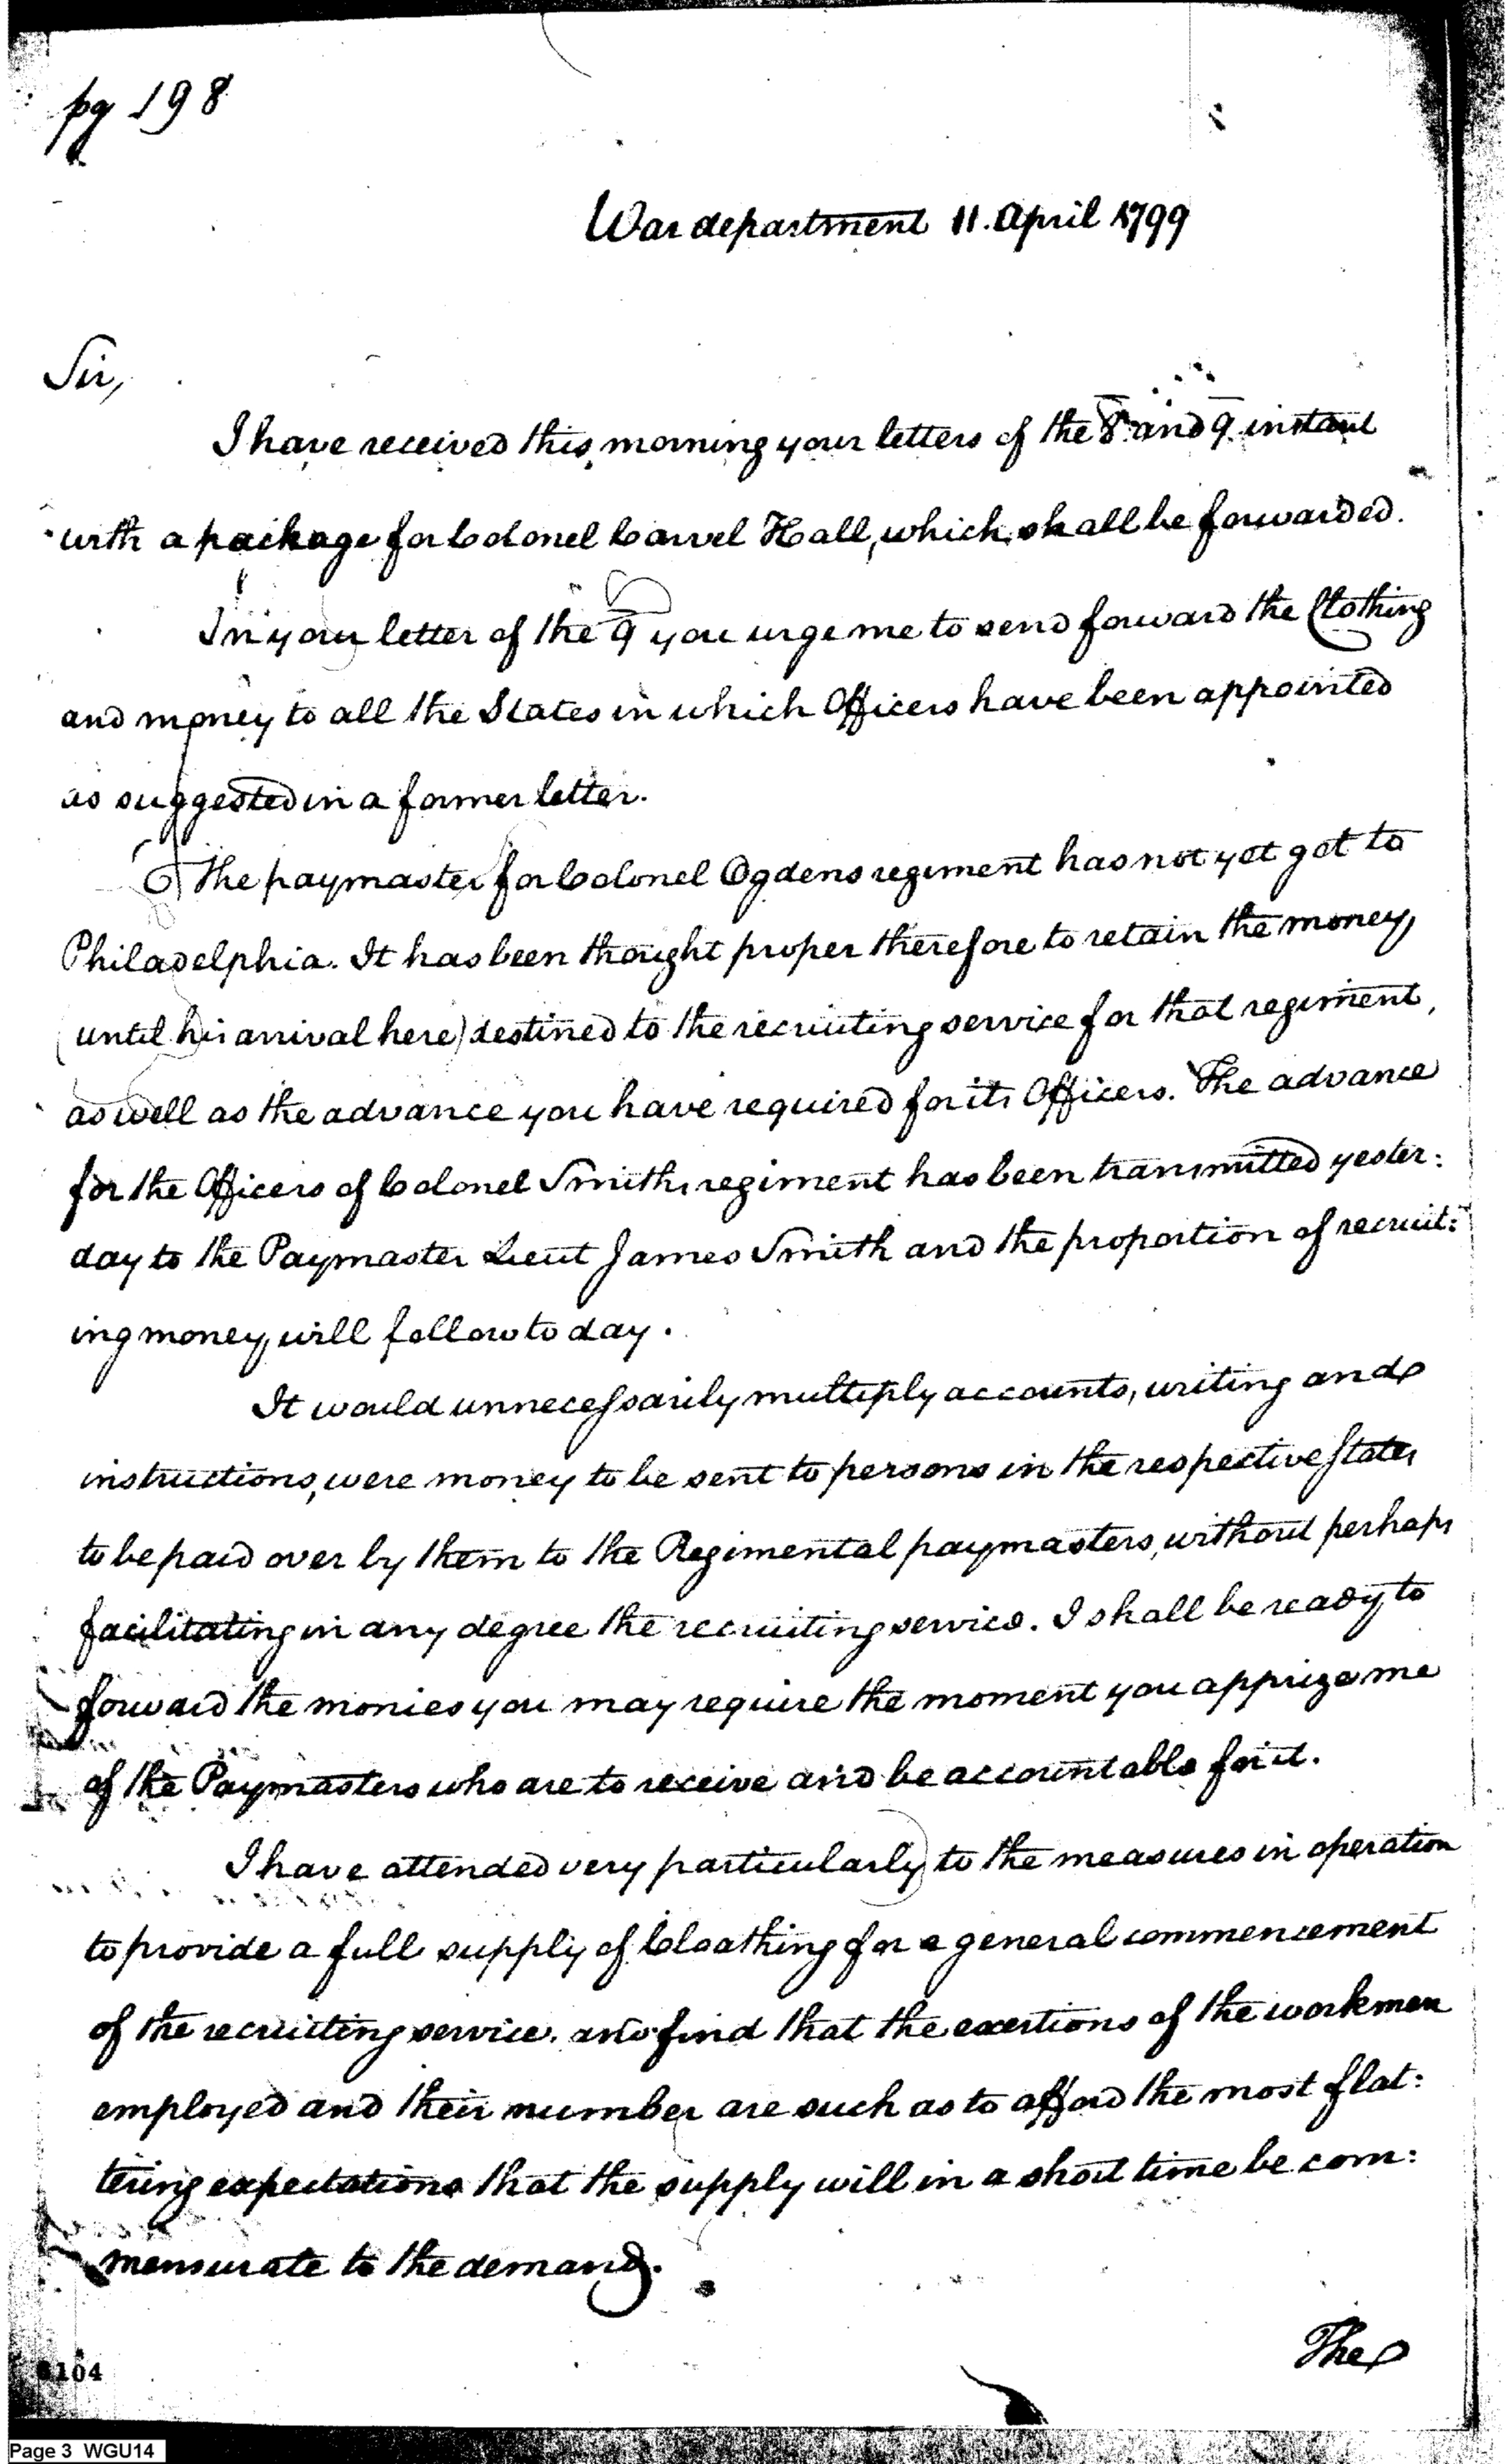 pg 198
War department 11. April 1799
Sir,
I have received this morning your letters of the 8 and 9 instant
with a package for Colonel Carvel Hall, which shall be forwarded.
In your letter of the 9 you urge me to send forward the Clothing
and money to all the States in which Officers have been appointed
as suggested in a former letter.
The paymaster for Colonel Ogdens regiment has not yet got to
Philadelphia. It has been thought proper therefore to retain the money
(until his arrival here) destined to the recruiting service for that regiment,
as well as the advance you have required for its Officers. The advance
for the Officers of Colonel Smiths regiment has been transmitted yester:
day to the Paymaster Lieut James Smith and the proportion of recruit:
ing money, will follow to day.
It would unnecessarily multiply accounts, writing and
instructions, were money to be sent to persons in the respective States
to be paid over by them to the Regimental paymasters, without perhaps
facilitating in any degree the recruiting service. I shall be ready to
forward the monies you may require the moment you apprize me
of the Paymasters who are to receive and be accountable for it.
I have attended very particularly to the measures in operation
to provide a full supply of Cloathing for a general commencement
of the recruiting service, and find that the exertions of the workmen
employed and their number are such as to afford the most flat:
tering expectations that the supply will in a short time be com:
mensurate to the demand.
The
104
Page 3 WGU14